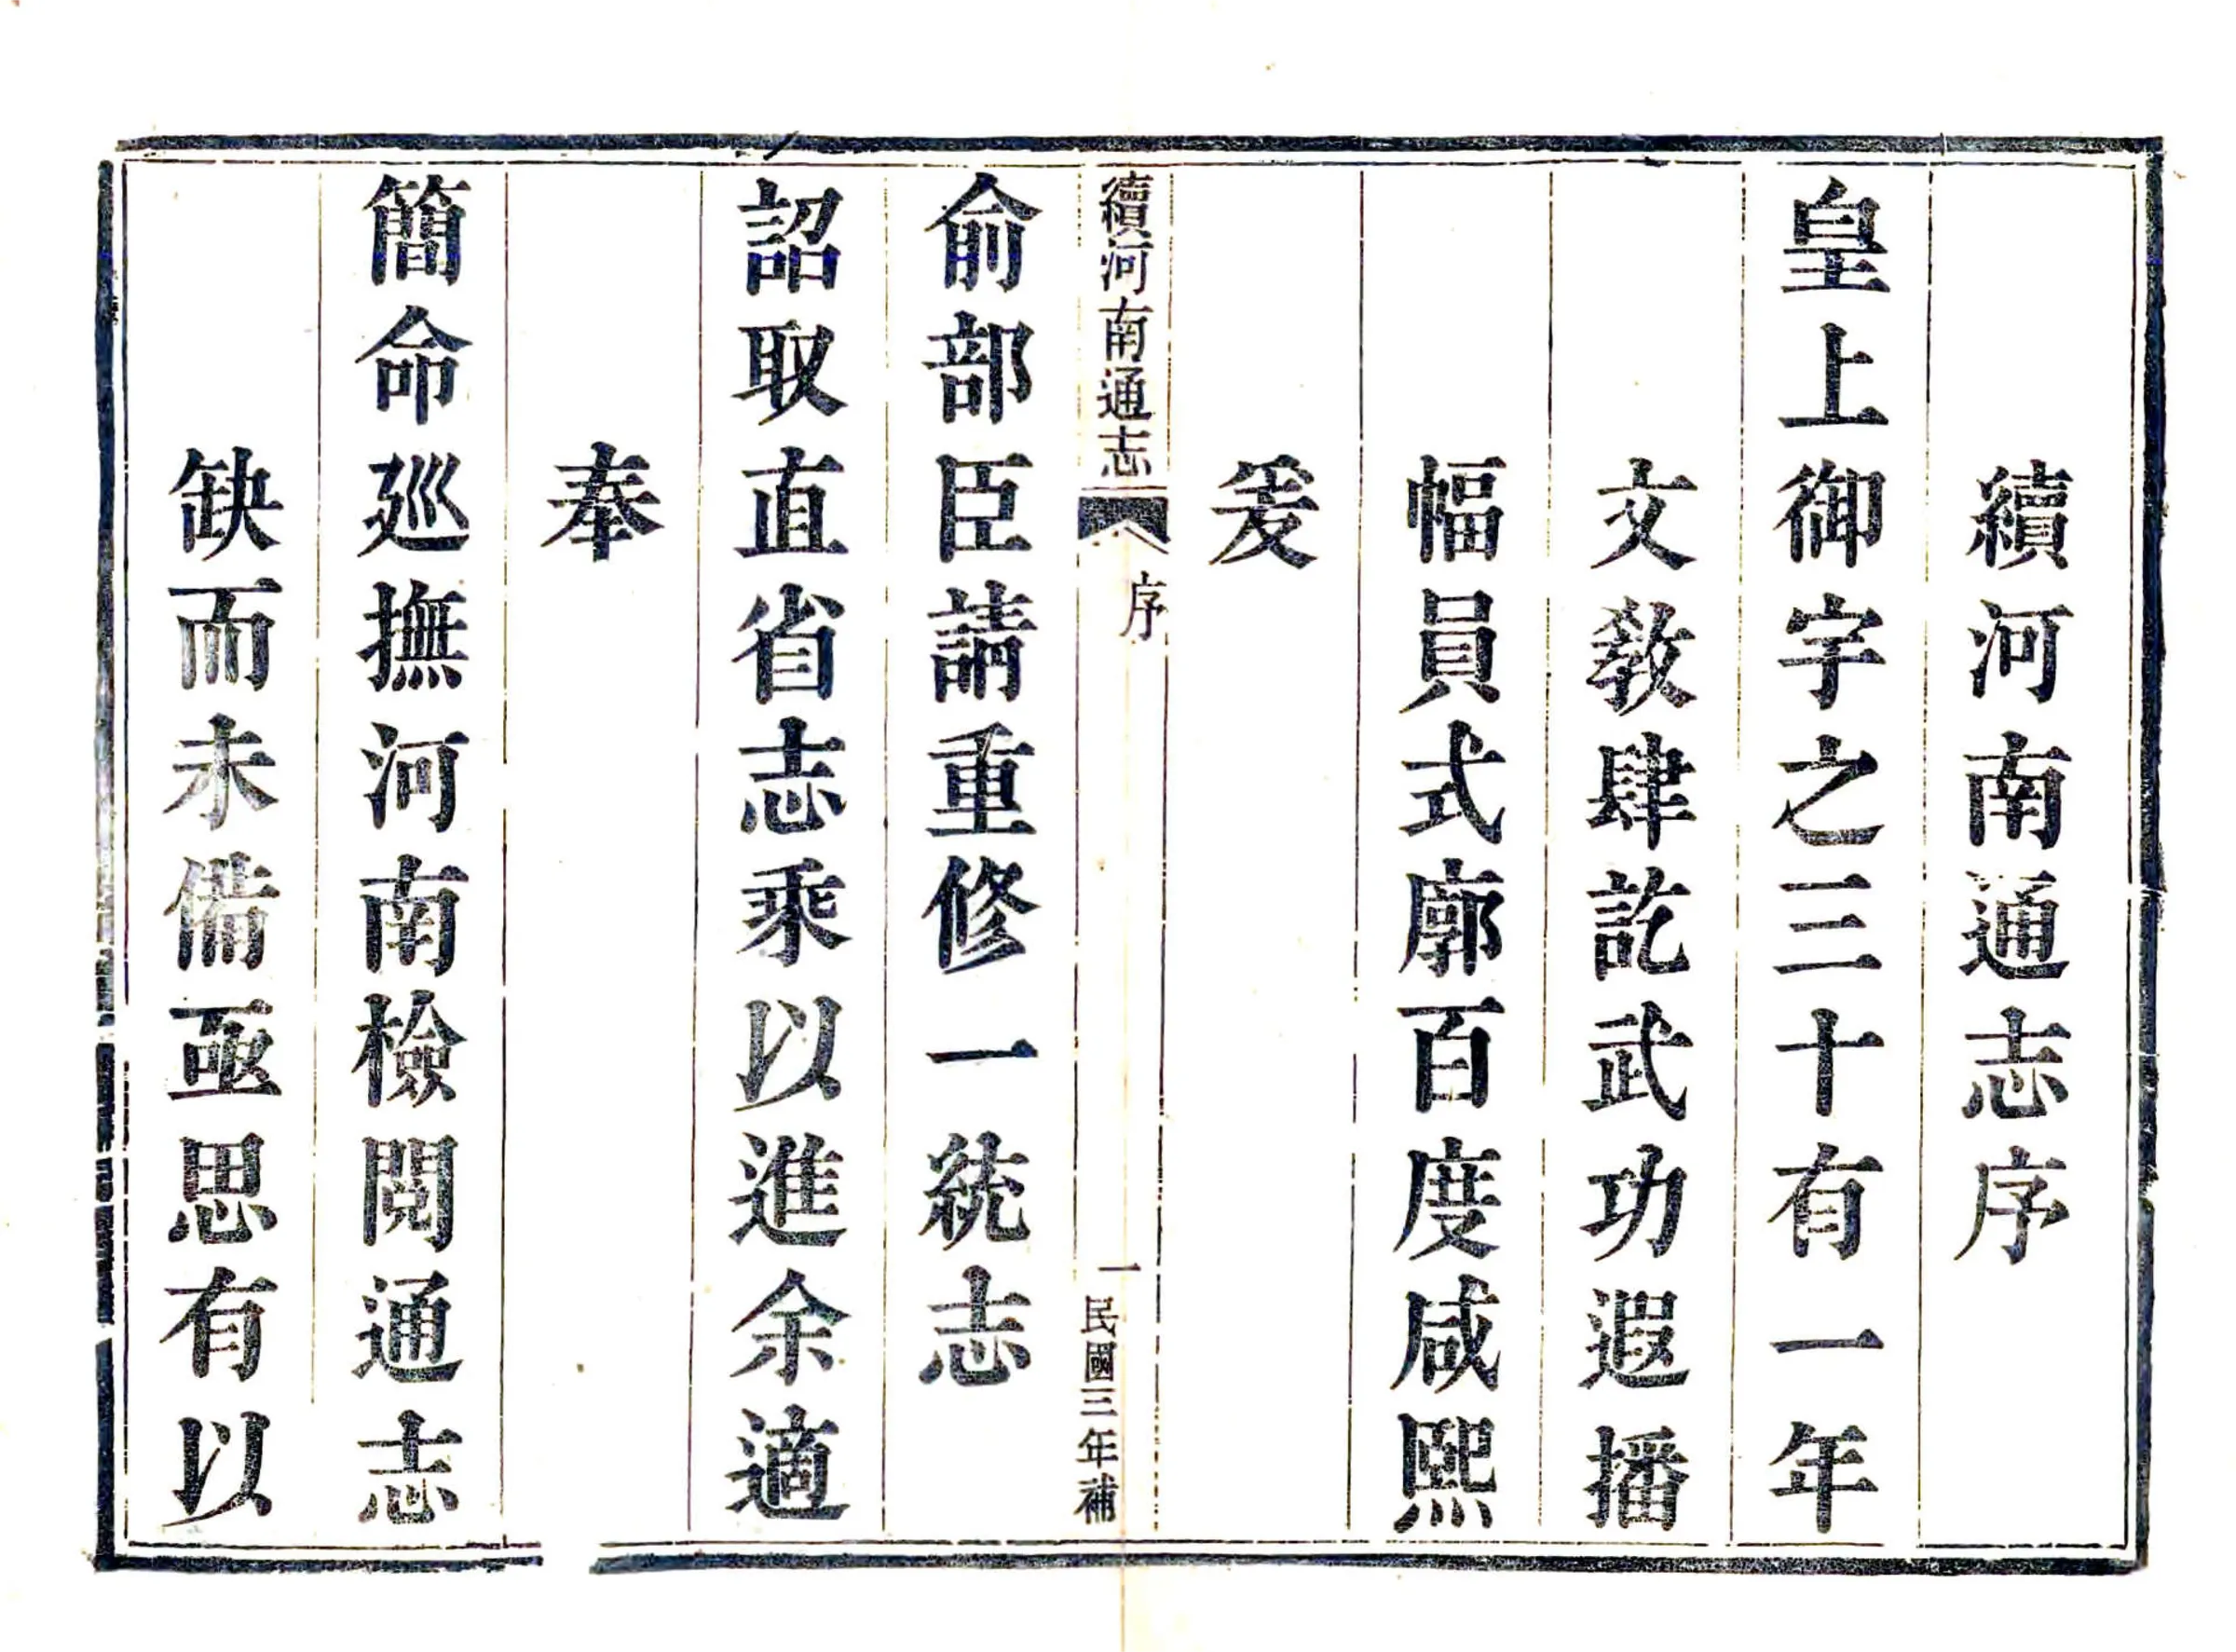 續河南通志序
皇上御宇之三十有一年
文敎肆訖武功遐播
幅員式廓百度咸熙
爰
續河南通志
序
一
民國三年補
俞部臣請重修一統志
詔取直省志乘以進余適
奉
簡命廵撫河南檢閱通志
缺而未備亟思有以